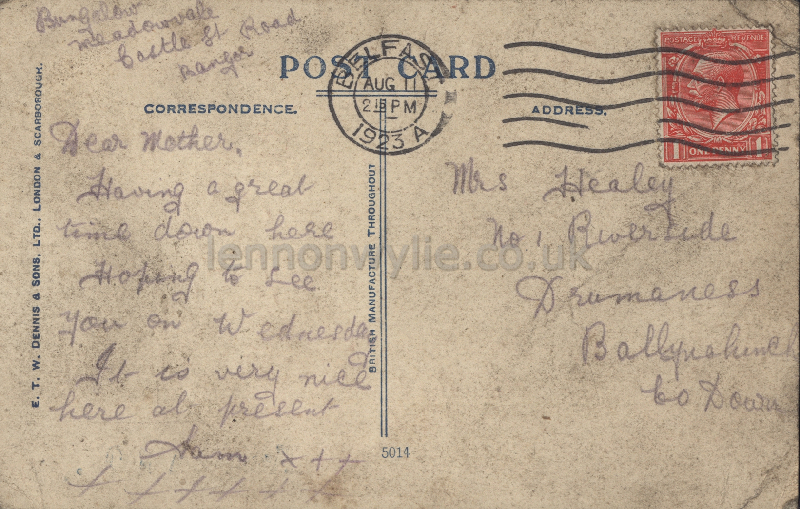 Bungalow
Meadowvale
Castle St Road
Bangor
POST CARD
BELFAST
AUG 11
2 15 PM
1923 A
CORRESPONDENCE.
ADDRESS.
POSTAGE REVENUE
1D ONE PENNY 1D
Dear Mother,
Having a great
time down here
Hoping to see
you on Wednesday
It is very nice
here at present
x + +
+ + + + +
Mrs Healey
No 1, Riverside
Drumaness
Ballynahinch
Co Down
E. T. W. DENNIS & SONS, LTD., LONDON & SCARBOROUGH.
BRITISH MANUFACTURE THROUGHOUT
5014
lennonwylie.co.uk